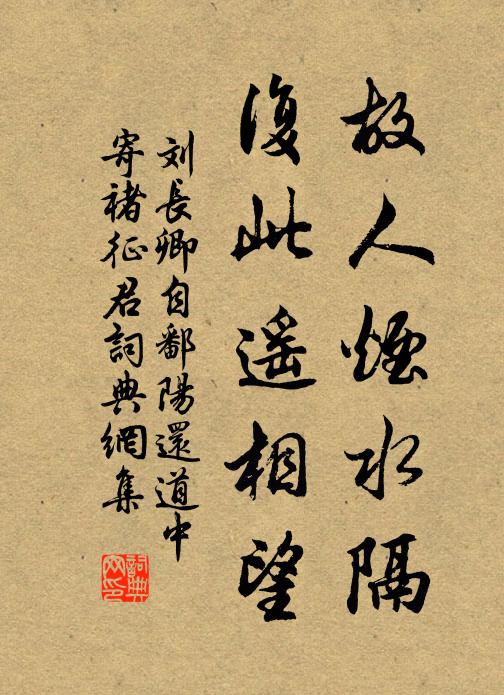 故人煙水隔
復此遥相望
刘長卿自鄱陽還道中
寄褚征君詞典網集
詞典
网印